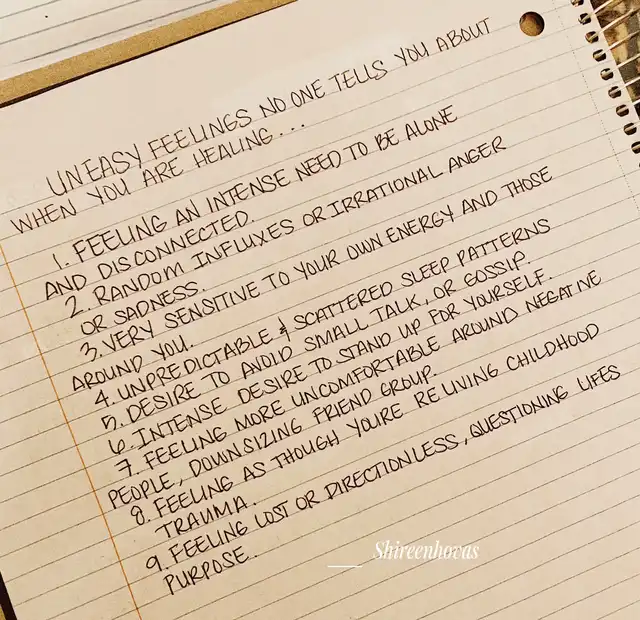 UNEASY FEELINGS NO ONE TELLS YOU ABOUT
WHEN YOU ARE HEALING...
1. FEELING AN INTENSE NEED TO BE ALONE
AND DISCONNECTED.
2. RANDOM INFLUXES OR IRRATIONAL ANGER
OR SADNESS.
3. VERY SENSITIVE TO YOUR OWN ENERGY AND THOSE
AROUND YOU.
4. UNPREDICTABLE & SCATTERED SLEEP PATTERNS
5. DESIRE TO AVOID SMALL TALK, OR GOSSIP.
6. INTENSE DESIRE TO STAND UP FOR YOURSELF.
7. FEELING MORE UNCOMFORTABLE AROUND NEGATIVE
PEOPLE, DOWNSIZING FRIEND GROUP.
8. FEELING AS THOUGH YOURE RELIVING CHILDHOOD
TRAUMA.
9. FEELING LOST OR DIRECTIONLESS, QUESTIONING LIFES
PURPOSE.
Shireenhovas